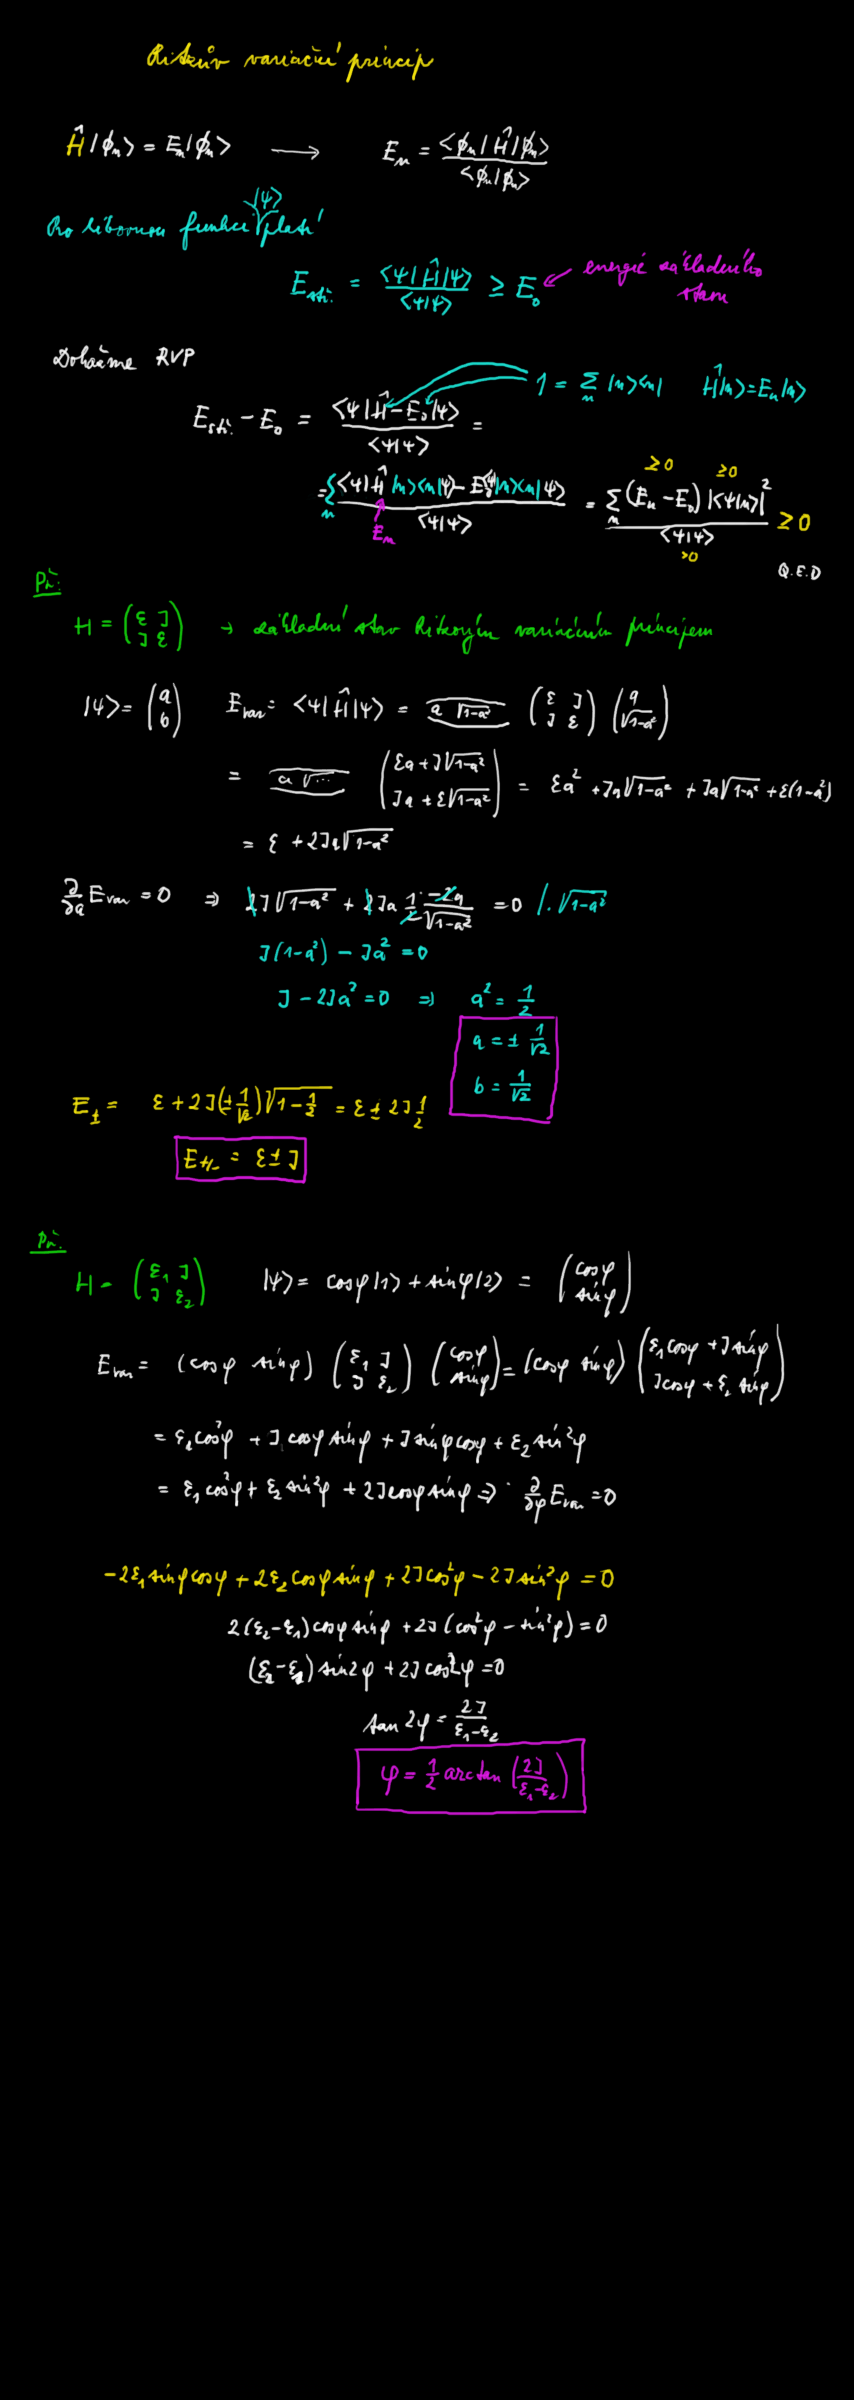 Ritzův variační princip
Ĥ|ϕₙ> = Eₙ|ϕₙ> → Eₙ = <ϕₙ|Ĥ|ϕₙ> / <ϕₙ|ϕₙ>
Pro libovolnou funkci |ψ> platí
E_stř. = <ψ|Ĥ|ψ> / <ψ|ψ> ≥ E₀ ← energie základního stavu
Dokažme RVP
1 = Σₙ |n><n| Ĥ|n> = Eₙ|n>
E_stř. − E₀ = <ψ|Ĥ − E₀|ψ> / <ψ|ψ> =
= Σₙ (<ψ|Ĥ|n><n|ψ> − E₀<ψ|n><n|ψ>) / <ψ|ψ> = Σₙ (Eₙ − E₀)|<ψ|n>|² / <ψ|ψ> ≥ 0
Eₙ ≥0 ≥0 >0
Q.E.D
Př:
H = (ε J; J ε) → základní stav Ritzovým variačním principem
|ψ> = (a; b) E_var = <ψ|Ĥ|ψ> = (a √(1−a²)) (ε J; J ε) (a; √(1−a²))
= (a √…) (εa + J√(1−a²); Ja + ε√(1−a²)) = εa² + Ja√(1−a²) + Ja√(1−a²) + ε(1−a²)
= ε + 2Ja√(1−a²)
∂/∂a E_var = 0 ⇒ 2J√(1−a²) + 2Ja 1/2 (−2a)/√(1−a²) = 0 /·√(1−a²)
J(1−a²) − Ja² = 0
J − 2Ja² = 0 ⇒ a² = 1/2
a = ± 1/√2
b = 1/√2
E± = ε + 2J(± 1/√2)√(1 − 1/2) = ε ± 2J 1/2
E+/- = ε ± J
Př:
H = (ε₁ J; J ε₂) |ψ> = cosφ|1> + sinφ|2> = (cosφ; sinφ)
E_var = (cosφ sinφ) (ε₁ J; J ε₂) (cosφ; sinφ) = (cosφ sinφ) (ε₁cosφ + J sinφ; Jcosφ + ε₂ sinφ)
= ε₁cos²φ + J cosφ sinφ + J sinφ cosφ + ε₂ sin²φ
= ε₁ cos²φ + ε₂ sin²φ + 2J cosφ sinφ ⇒ ∂/∂φ E_var = 0
−2ε₁ sinφ cosφ + 2ε₂ cosφ sinφ + 2J cos²φ − 2J sin²φ = 0
2(ε₂−ε₁) cosφ sinφ + 2J (cos²φ − sin²φ) = 0
(ε₂−ε₁) sin2φ + 2J cos2φ = 0
tan 2φ = 2J / (ε₁−ε₂)
φ = 1/2 arctan (2J / (ε₁−ε₂))